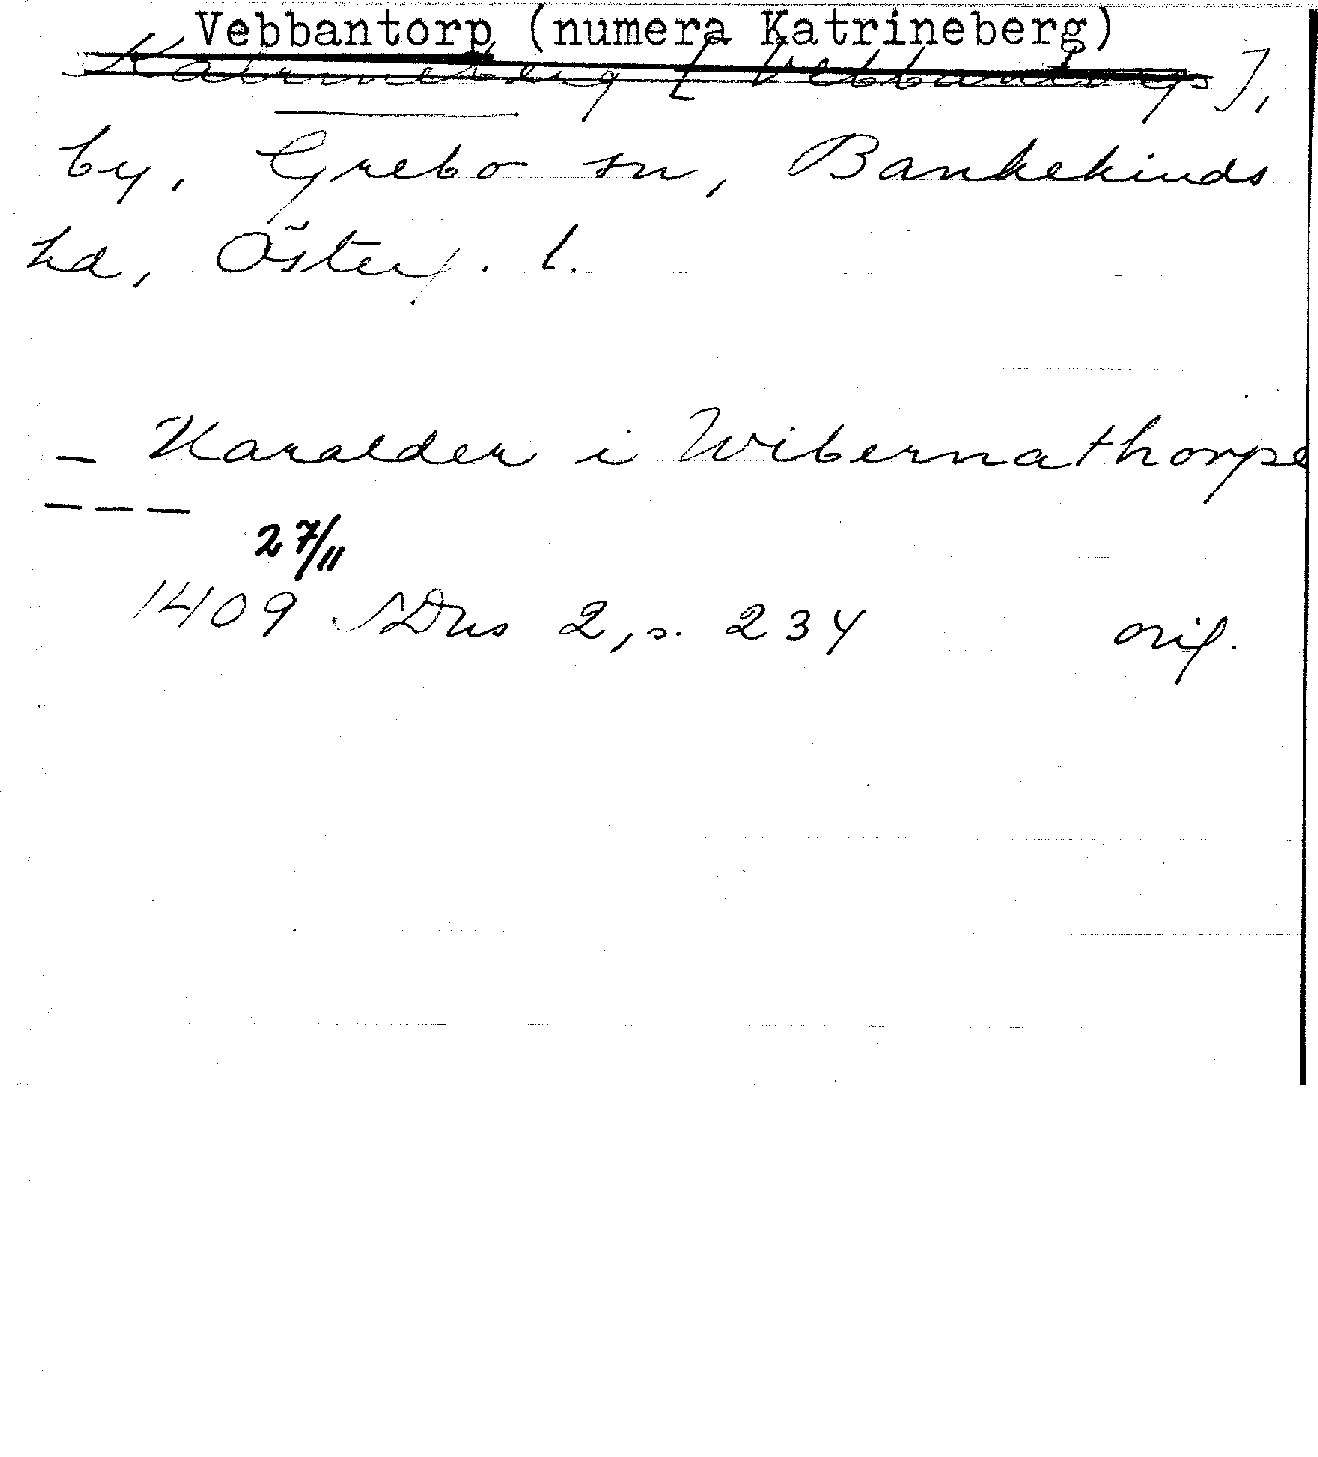 Vebbantorp (numera Katrineberg)
Katrineberg [Vebbantorp],
by, Grebo sn, Bankekinds
hd, Österg. l.
– Haralder i Wibernathorpe
– – –
27/11
1409 SDns 2, s. 234 orig.